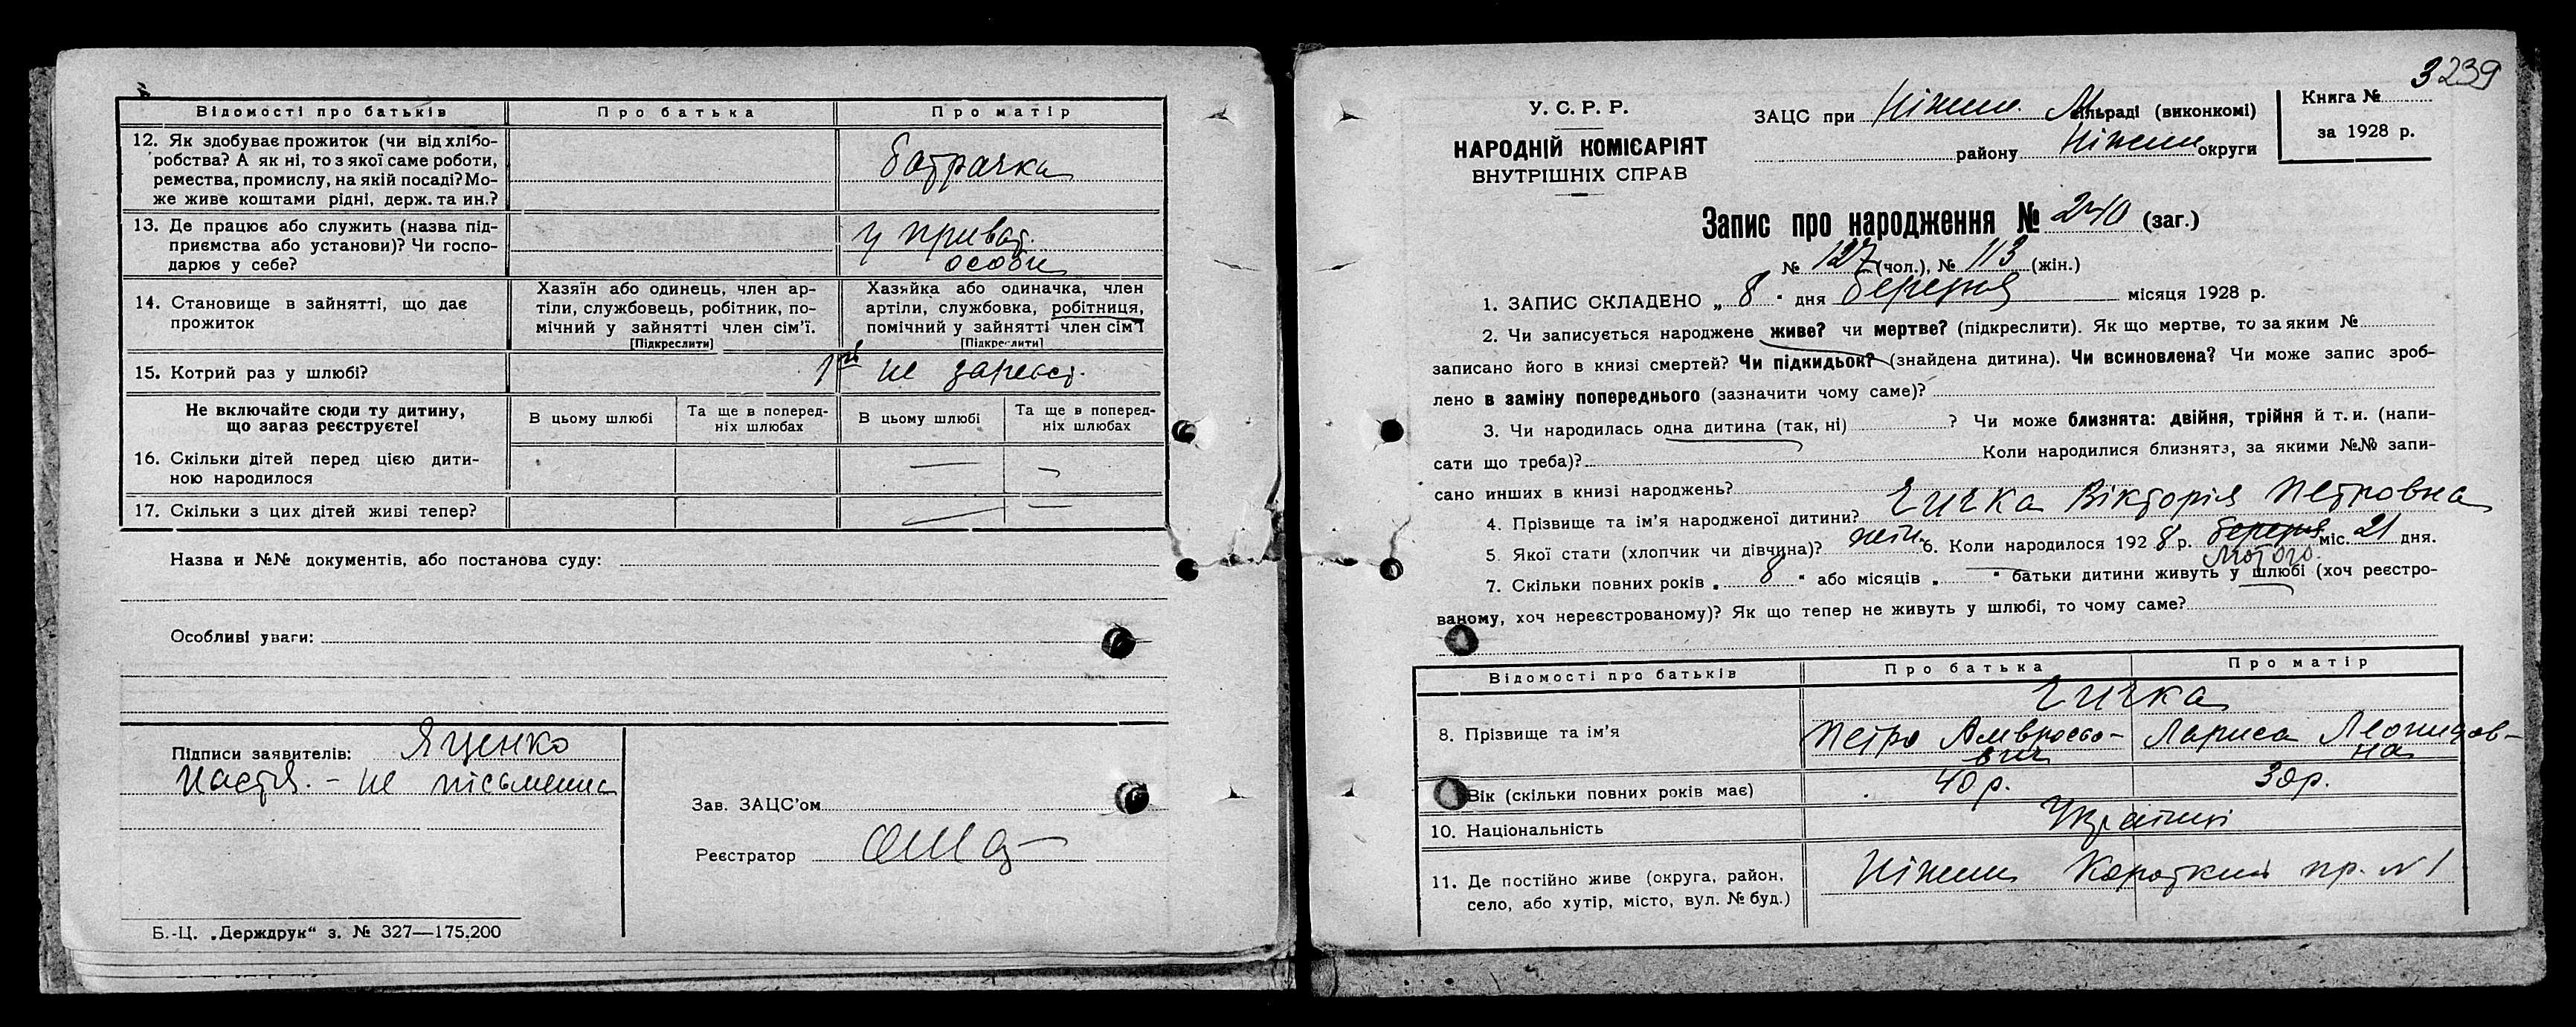 Відомості про батьків
Про батька
Про матір
12. Як здобуває прожиток (чи від хлібо-
робства? А як ні, то з якої саме роботи,
ремества, промислу, на якій посаді? Мо-
же живе коштами рідні, держ. та ин.?
батрачка
13. Де працює або служить (назва під-
приємства або установи)? Чи госпо-
дарює у себе?
у приват.
особи
14. Становище в зайнятті, що дає
прожиток
Хазяїн або одинець, член ар-
тіли, службовець, робітник, по-
мічний у зайнятті член сім'ї.
[Підкреслити]
Хазяйка або одиначка, член
артіли, службовка, робітниця,
помічний у зайнятті член сім'ї
[Підкреслити]
15. Котрий раз у шлюбі?
не зареєст.
Не включайте сюди ту дитину,
що зараз реєструєте!
В цьому шлюбі
Та ще в поперед-
ніх шлюбах
В цьому шлюбі
Та ще в поперед-
ніх шлюбах
16. Скільки дітей перед цією дити-
ною народилося
17. Скільки з цих дітей живі тепер?
Назва и №№ документів, або постанова суду:
Особливі уваги:
Підписи заявителів: Яценко
Настя. - не пісьменна
Зав. ЗАЦС'ом
Реєстратор
Б.-Ц. „Держдрук“ з. № 327—175.200
3239
У. С. Р. Р.
НАРОДНІЙ КОМІСАРІЯТ
ВНУТРІШНІХ СПРАВ
ЗАЦС при Ніжин. Мільраді (виконкомі)
району Ніжин округи
Книга №
за 1928 р.
Запис про народження № 240 (заг.)
№ 127 (чол.), № 113 (жін.)
1. ЗАПИС СКЛАДЕНО „ 8 “ дня березня місяця 1928 р.
2. Чи записується народжене живе? чи мертве? (підкреслити). Як що мертве, то за яким №
записано його в книзі смертей? Чи підкидьок? (знайдена дитина). Чи всиновлена? Чи може запис зроб-
лено в заміну попереднього (зазначити чому саме)?
3. Чи народилась одна дитина (так, ні) ? Чи може близнята: двійня, трійня й т. и. (напи-
сати що треба)? Коли народилися близнята, за якими №№ запи-
сано инших в книзі народжень?
4. Прізвище та ім'я народженої дитини? Гичка Вікторія Петровна
5. Якої стати (хлопчик чи дівчина)? жін. 6. Коли народилося 192 8 р. березня міс. 21 дня.
Лютого.
7. Скільки повних років „ 8 “ або місяців „ “ батьки дитини живуть у шлюбі (хоч реєстро-
ваному, хоч нереєстрованому)? Як що тепер не живуть у шлюбі, то чому саме?
Відомості про батьків
Про батька
Про матір
Гичка
8. Прізвище та ім'я
Петро Амвросьо-
вич
Лариса Леонидов-
на
Вік (скільки повних років має)
40 р.
30р.
10. Національність
Українці
11. Де постійно живе (округа, район,
село, або хутір, місто, вул. № буд.)
Ніжин Короткий пр. N 1